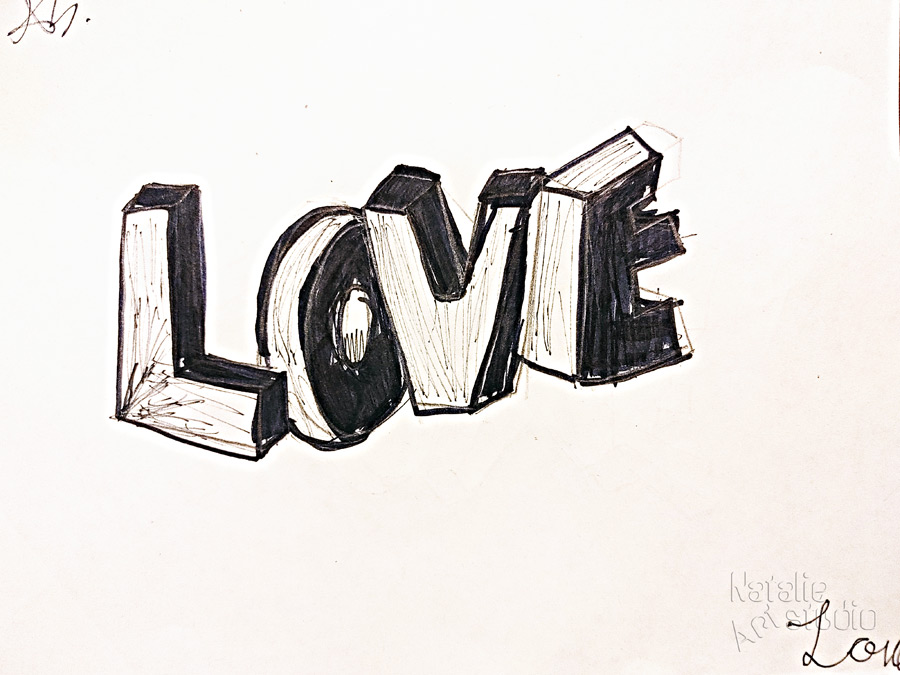 LOVE
Natalie
Art studio